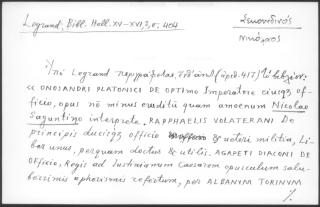 Legrand, Bibl. Hell. XV-XVI, 3, σ. 404
Σεκουνδινός
Νικόλαος
Ὑπὸ Legrand περιγράφεται (ἀριθ. 417) τὸ
« ONOSANDRI PLATONICI DE OPTIMO Imperatore eiusq; of-
ficio, opus nō minus eruditū quam amoenum Nicolao
Saguntino interprete. RAPPHAELIS VOLATERANI De
principis ducisq; officio & veteri militia, Li-
ber unus, perquam doctus & utilis. AGAPETI DIACONI DE
Officio, Regis ad Iustinianum Caesarem opusculum salu-
berrimis aphorismis refertum, per ALBANUM TORINUM